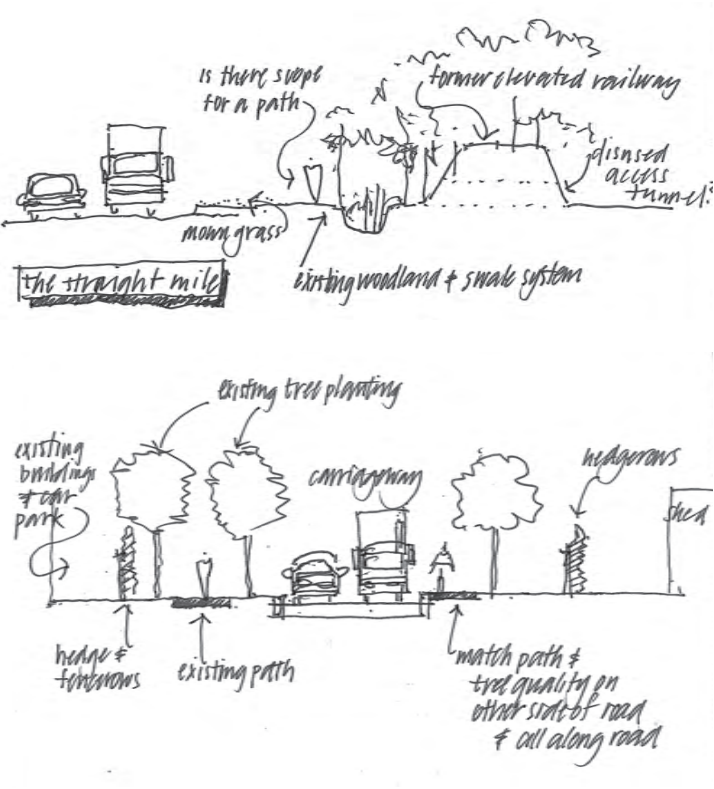 is there scope
for a path
former elevated railway
disused
access
tunnel?
mown grass
existing woodland & swale system
the straight mile
existing tree planting
existing
buildings
& car
park
carriageway
hedgerows
shed
hedge &
existing path
match path &
tree quality on
other side of road
& all along road